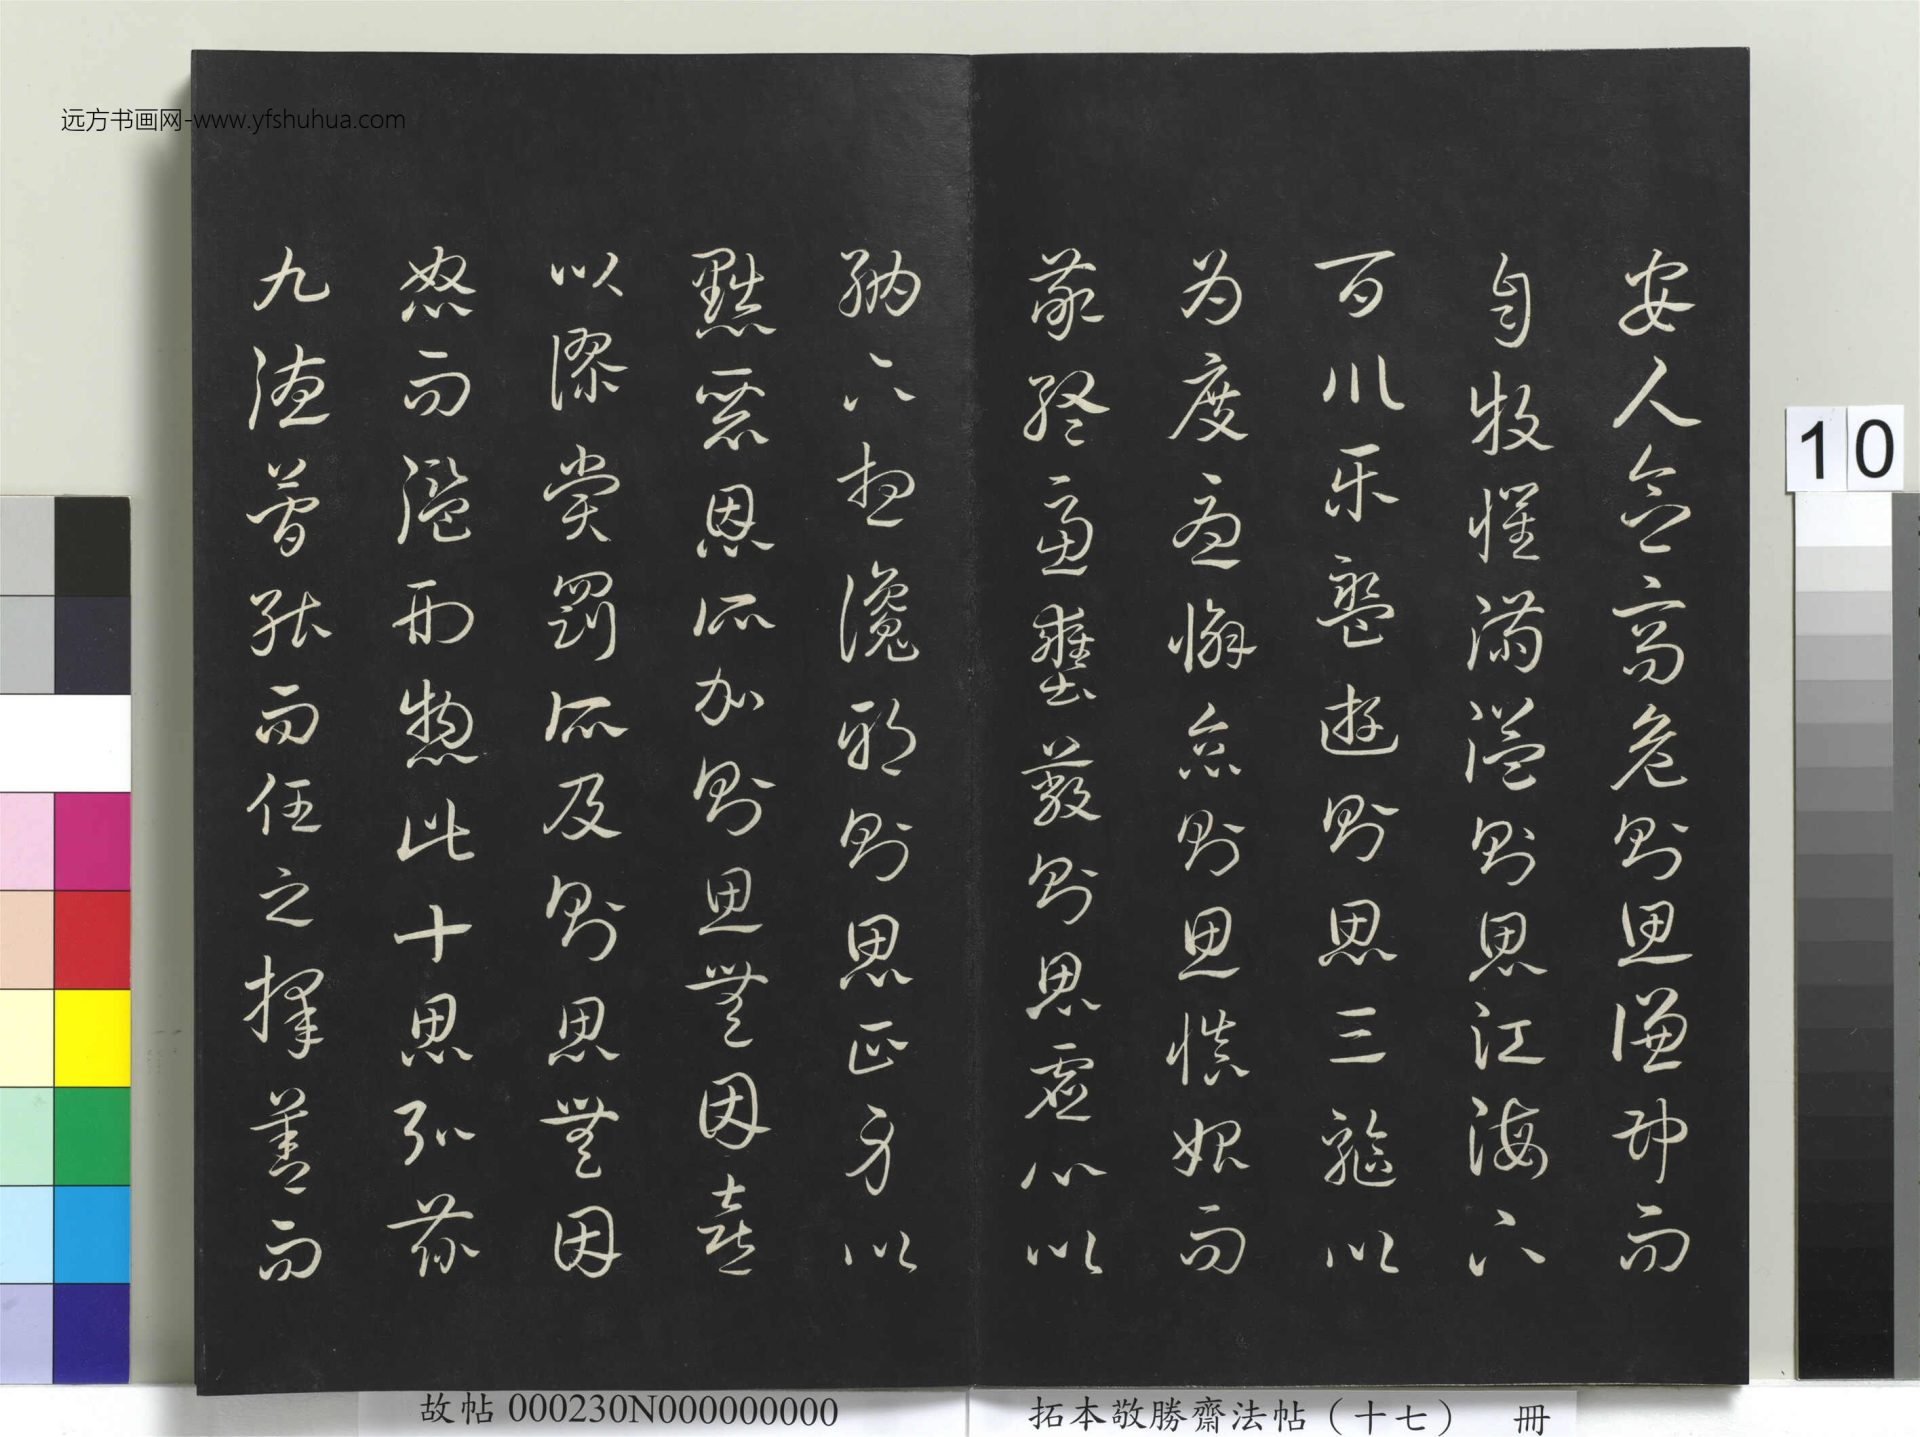 安人念高危則思謙沖而
自牧懼滿溢則思江海下
百川樂盤遊則思三驅以
為度憂懈怠則思慎始而
敬終慮壅蔽則思虛心以
納下想讒邪則思正身以
黜惡恩所加則思無因喜
以謬賞罰所及則思無因
怒而濫刑惣此十思弘茲
九德簡能而任之擇善而
远方书画网-www.yfshuhua.com
10
故帖 000230N000000000
拓本敬勝齋法帖（十七） 冊